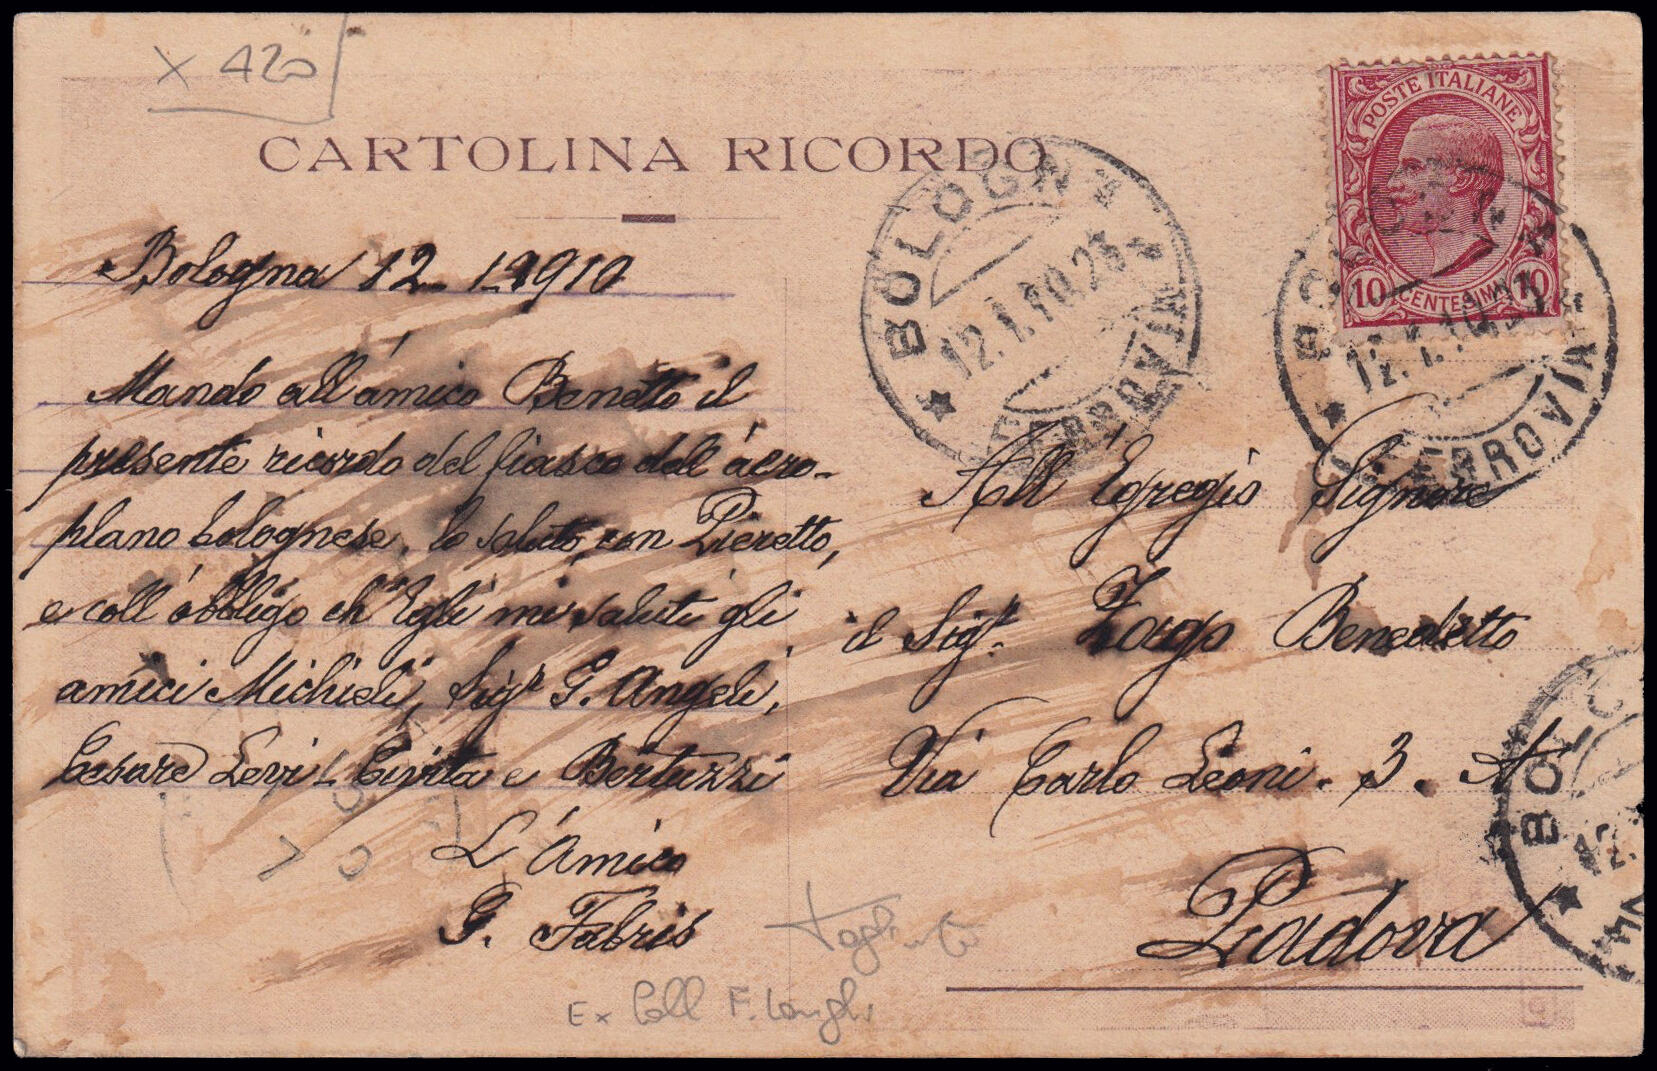 X 420
CARTOLINA RICORDO
Bologna 12-1-1910
Mando all'amico Benetto il
presente ricordo del fiasco dell'aero-
plano bolognese, lo saluto, con Pieretto,
e coll'obbligo ch'Egli mi saluti gli
amici Michieli, Sigr G. Angeli,
Cesare Levi-Civita e Bertazzi
L'Amico
G. Fabris
Ex Coll F. Longhi
POSTE ITALIANE
10 CENTESIMI 10
BOLOGNA
12.1.10.23
FERROVIA
BO
12.1.10.23
FERROVIA
All'Egregio Signore
il Sigr. Zago Benedetto
Via Carlo Leoni. 3. A
Padova
BOLOG
12.
VIA